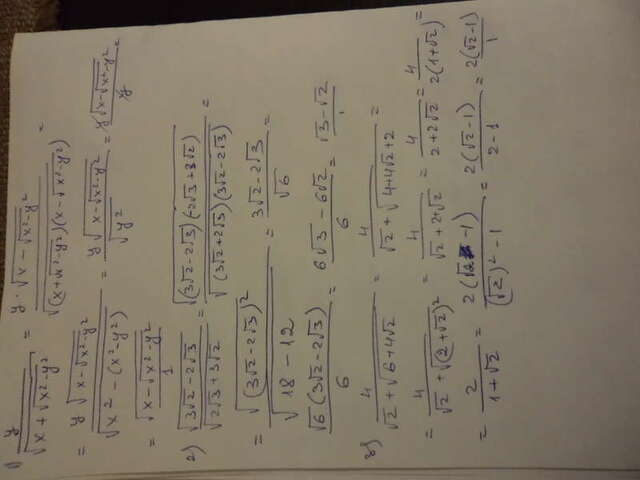 1) y/√(x+√(x²-y²)) = y·√(x-√(x²-y²))/√((x+√(x²-y²))(x-√(x²-y²))) =
= y√(x-√(x²-y²))/√(x²-(x²-y²)) = y√(x-√(x²-y²))/√(y²) = y√(x-√(x²-y²))/y =
= √(x-√(x²-y²))/1
2) √(3√2-2√3)/√(2√3+3√2) = √((3√2-2√3)(-2√3+3√2))/√((3√2+2√3)(3√2-2√3)) =
= √((3√2-2√3)²)/√(18-12) = (3√2-2√3)/√6 =
√6(3√2-2√3)/6 = (6√3-6√2)/6 = (√3-√2)/1
3) 4/(√2+√(6+4√2)) = 4/(√2+√(4+4√2+2)) =
= 4/(√2+√((2+√2)²)) = 4/(√2+2+√2) = 4/(2+2√2) = 4/(2(1+√2)) =
= 2/(1+√2) = 2(√2-1)/((√2)²-1) = 2(√2-1)/(2-1) = 2(√2-1)/1